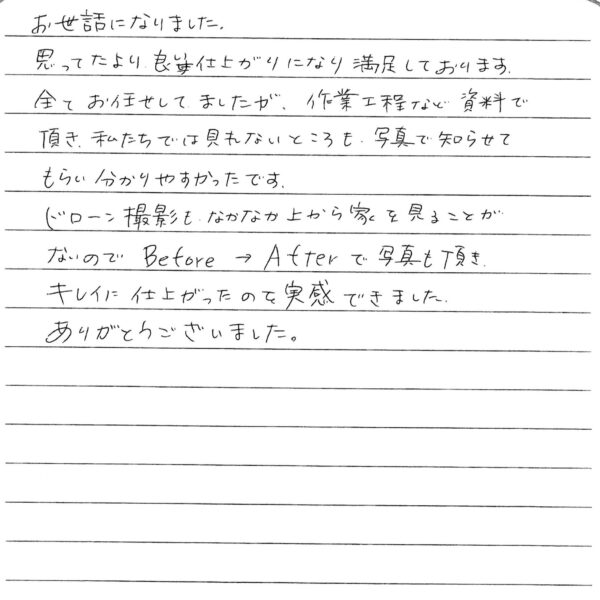 お世話になりました.
思ってたより良い仕上がりになり満足しております.
全てお任せしてましたが、作業工程など資料で
頂き、私たちでは見れないところも、写真で知らせて
もらい分かりやすかったです.
ドローン撮影も、なかなか上から家を見ることが
ないので Before → After で写真も頂き、
キレイに仕上がったのを実感できました.
ありがとうございました。